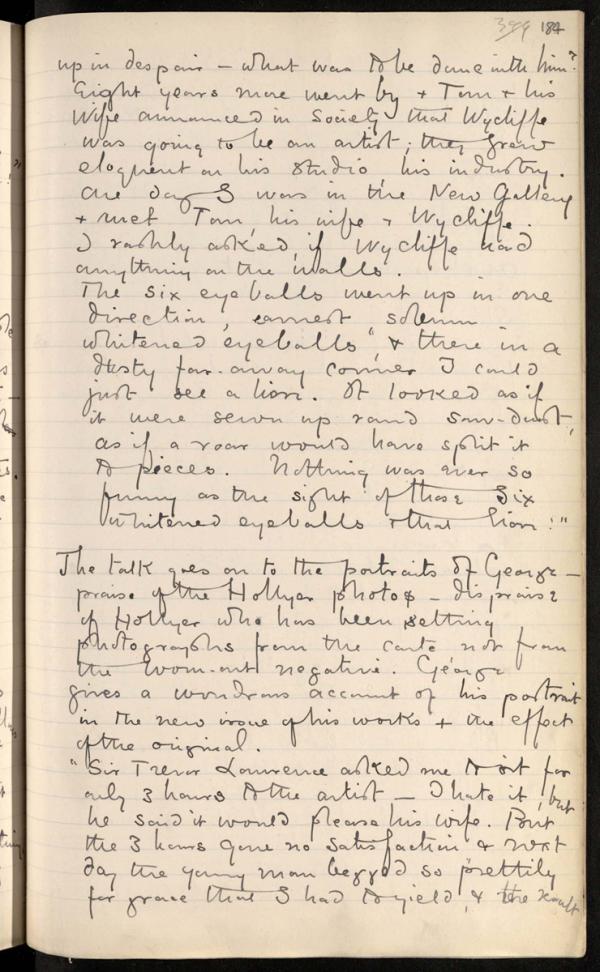 399 184
up in despair – what was to be done with him?
Eight years more went by & Tom & his
wife announced in Society that Wycliffe
was going to be an artist; they grew
eloquent on his studio, his industry.
One day I was in the New Gallery
& met Tom, his wife & Wycliffe.
I rashly asked, if Wycliffe had
anything on the walls.
The six eyeballs went up in one
direction, earnest solemn
whitened eyeballs", & there in a
dusty far-away corner I could
just see a lion. It looked as if
it were sewn up round saw-dust,
as if a roar would have split it
to pieces. Nothing was ever so
funny as the sight of those six
whitened eyeballs & that lion!"
The talk goes on to the portraits of George –
praise of the Hollyer photos – dispraise
of Hollyer who has been selling
photographs from the carte not from
the worn-out negative. George
gives a wondrous account of his portrait
in the new issue of his works & the effect
of the original.
"Sir Trevor Lawrence asked me to sit for
only 3 hours to the artist – I hate it, but
he said it would please his wife. But
the 3 hours gave no satisfaction & next
day the young man begged so prettily
for grace that I had to yield, & the result